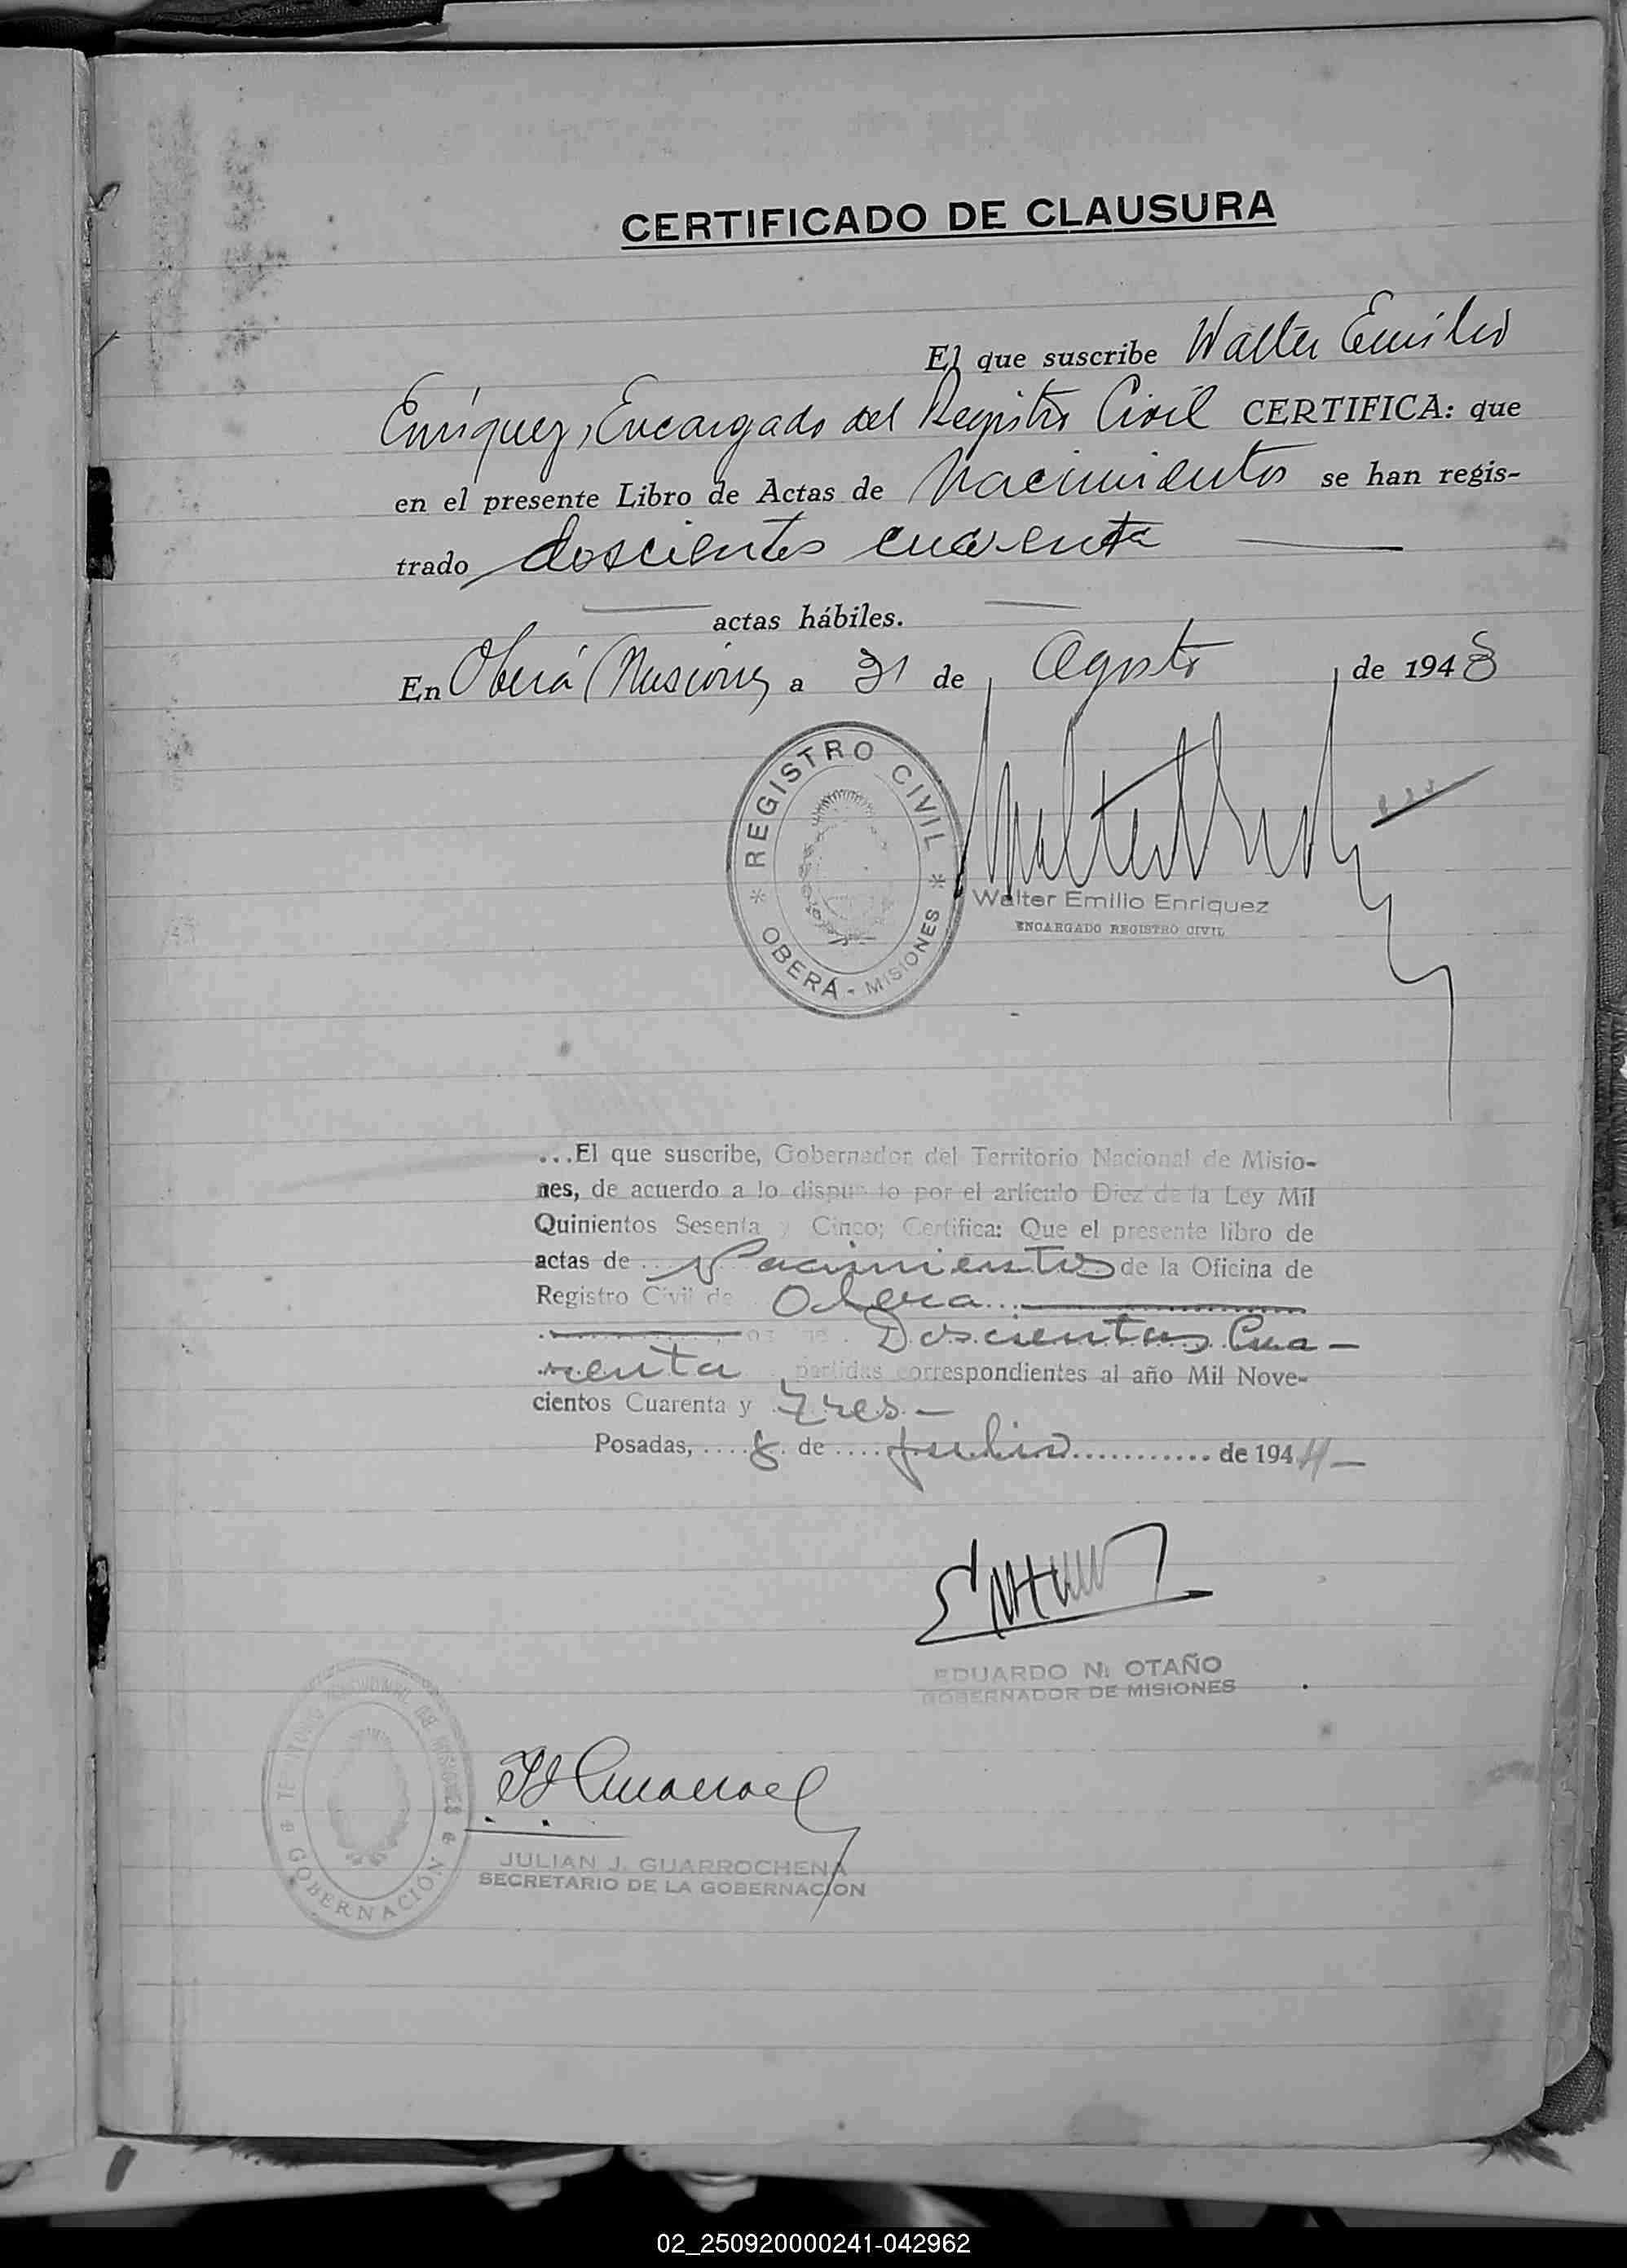 CERTIFICADO DE CLAUSURA
El que suscribe Walter Emilio
Enriquez, Encargado del Registro Civil CERTIFICA: que
en el presente Libro de Actas de Nacimientos se han regis-
trado doscientos cuarenta
actas hábiles.
En Oberá (Misiones) a 31 de Agosto de 1943
REGISTRO CIVIL
OBERÁ - MISIONES
Walter Emilio Enriquez
ENCARGADO REGISTRO CIVIL
...El que suscribe, Gobernador del Territorio Nacional de Misio-
nes, de acuerdo a lo dispuesto por el artículo Diez de la Ley Mil
Quinientos Sesenta y Cinco; Certifica: Que el presente libro de
actas de Nacimientos de la Oficina de
Registro Civil de Obera
Doscientas Cua-
renta partidas correspondientes al año Mil Nove-
cientos Cuarenta y Tres.-
Posadas, .... 8 de .... Julio ............ de 1944-
EDUARDO N. OTAÑO
GOBERNADOR DE MISIONES
TERRITORIO NACIONAL DE MISIONES
GOBERNACIÓN
JULIAN J. GUARROCHENA
SECRETARIO DE LA GOBERNACION
02_250920000241-042962